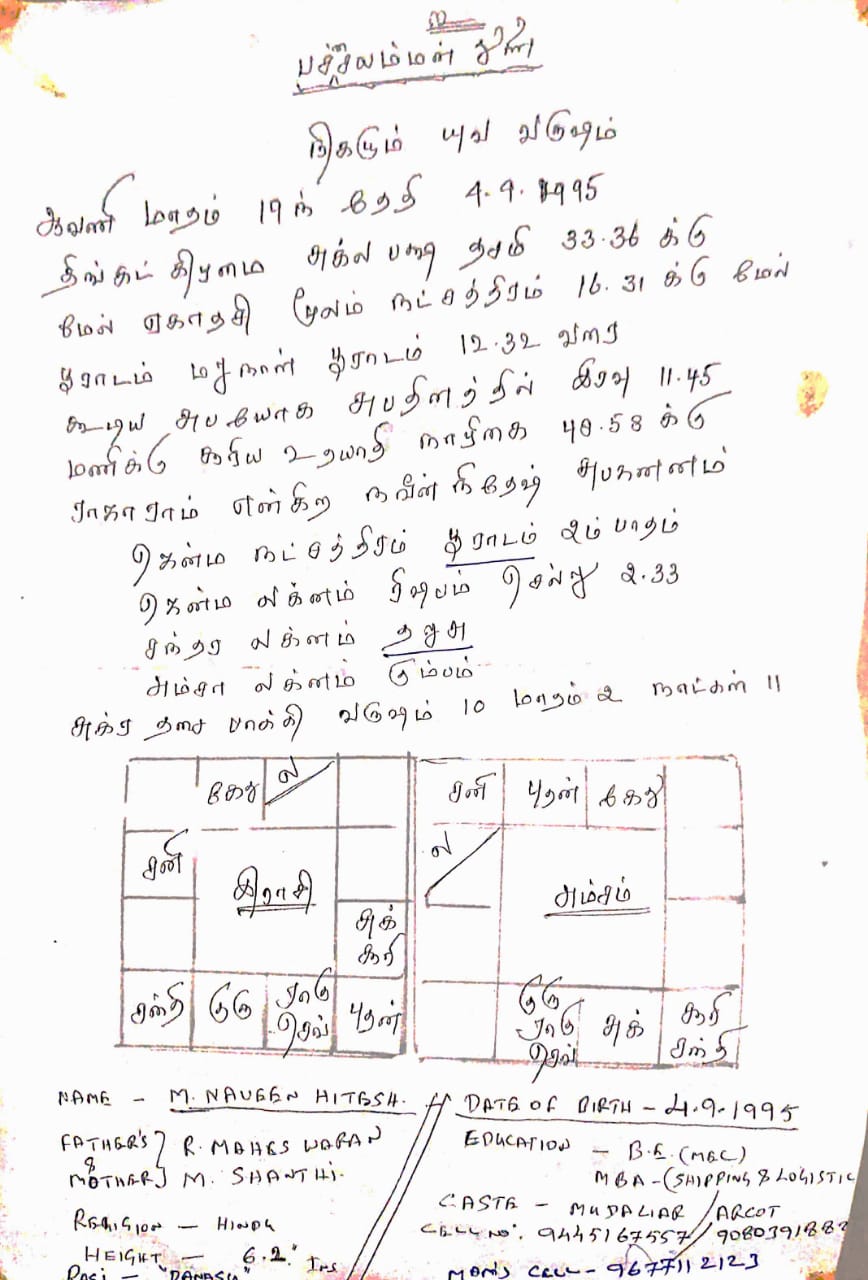 உ
பச்சையம்மன் துணை
நிகழும் யுவ வருஷம்
ஆவணி மாதம் 19ந் தேதி 4.9.1995
திங்கட் கிழமை சுக்ல பக்ஷ தசமி 33.36 க்கு
மேல் ஏகாதசி மூலம் நட்சத்திரம் 16.31 க்கு மேல்
பூராடம் மறுநாள் பூராடம் 12.32 வரை
கூடிய சுபயோக சுபதினத்தில் இரவு 11.45
மணிக்கு சூரிய உதயாதி நாழிகை 40.58 க்கு
ராஜாராம் என்கிற நவீன் ஹிதேஷ் சுபஜனனம்
ஜென்ம நட்சத்திரம் பூராடம் 2ம் பாதம்
ஜென்ம லக்னம் ரிஷபம் செல்லு 2.33
சந்திர லக்னம் தனுசு
அம்சா லக்னம் கும்பம்
சுக்ர தசை பாக்கி வருஷம் 10 மாதம் 2 நாட்கள் 11
கேது ல
சனி
இராசி
சுக்
சூரி
சந்தி குரு ராகு செவ் புதன்
சனி புதன் கேது
ல
அம்சம்
குரு ராகு செவ் சுக் சூரி சந்தி
NAME - M. NAVEEN HITESH. // DATE OF BIRTH - 4.9.1995
FATHER'S } R. MAHESWARAN
&
MOTHER } M. SHANTHI.
EDUCATION - B.E. (MEC)
MBA - (SHIPPING & LOGISTIC
RELIGION - HINDU
CASTE - MUDALIAR / ARCOT
CELL NO: 9445167557 / 9080391883
HEIGHT - 6.2" Ins
RASI - "DANASU"
MOM'S CELL - 9677112123